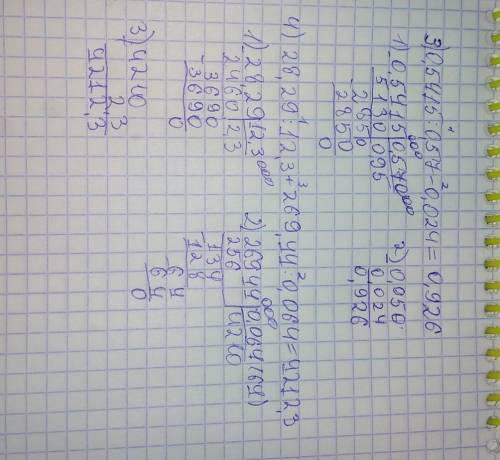 3) 0,5415 : 0,57 - 0,024 = 0,926
1) 0,5415 | 0,57 000 2) 0,950
5130 | 0,95 0,024
2850 0,926
2850
0
4) 28,29 : 12,3 + 269,44 : 0,064 = 4212,3
1) 28,29 | 12,3 000 2) 269,44 000 | 0,064 (64)
2460 | 2,3 256 | 4210
3690 134
3690 128
0 64
64
0
3) 4210
2,3
4212,3